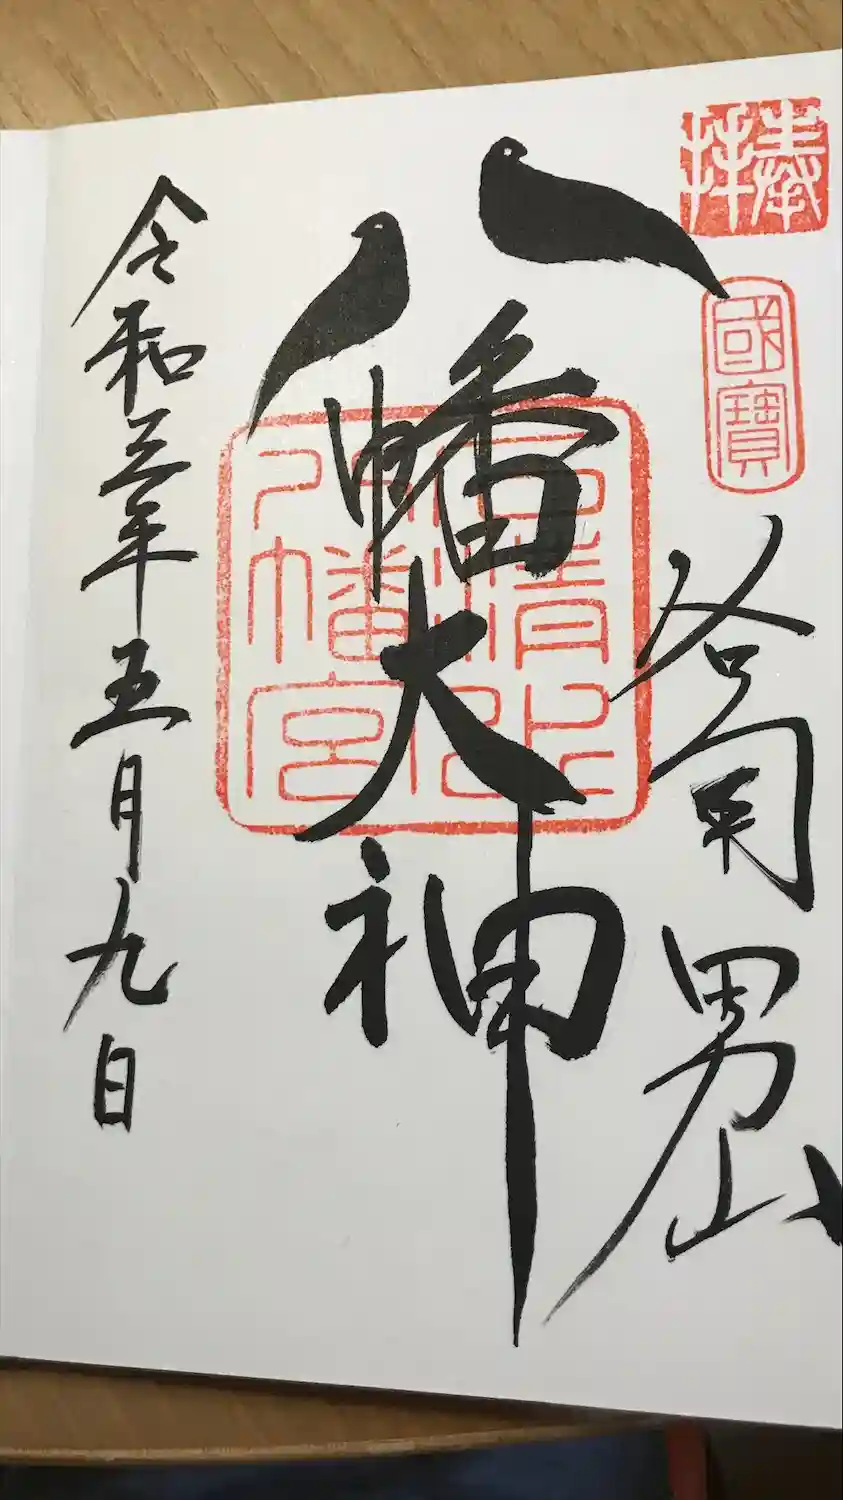 奉拝
國寶
男山
八幡大神
石清水
八幡宮
令和三年五月九日